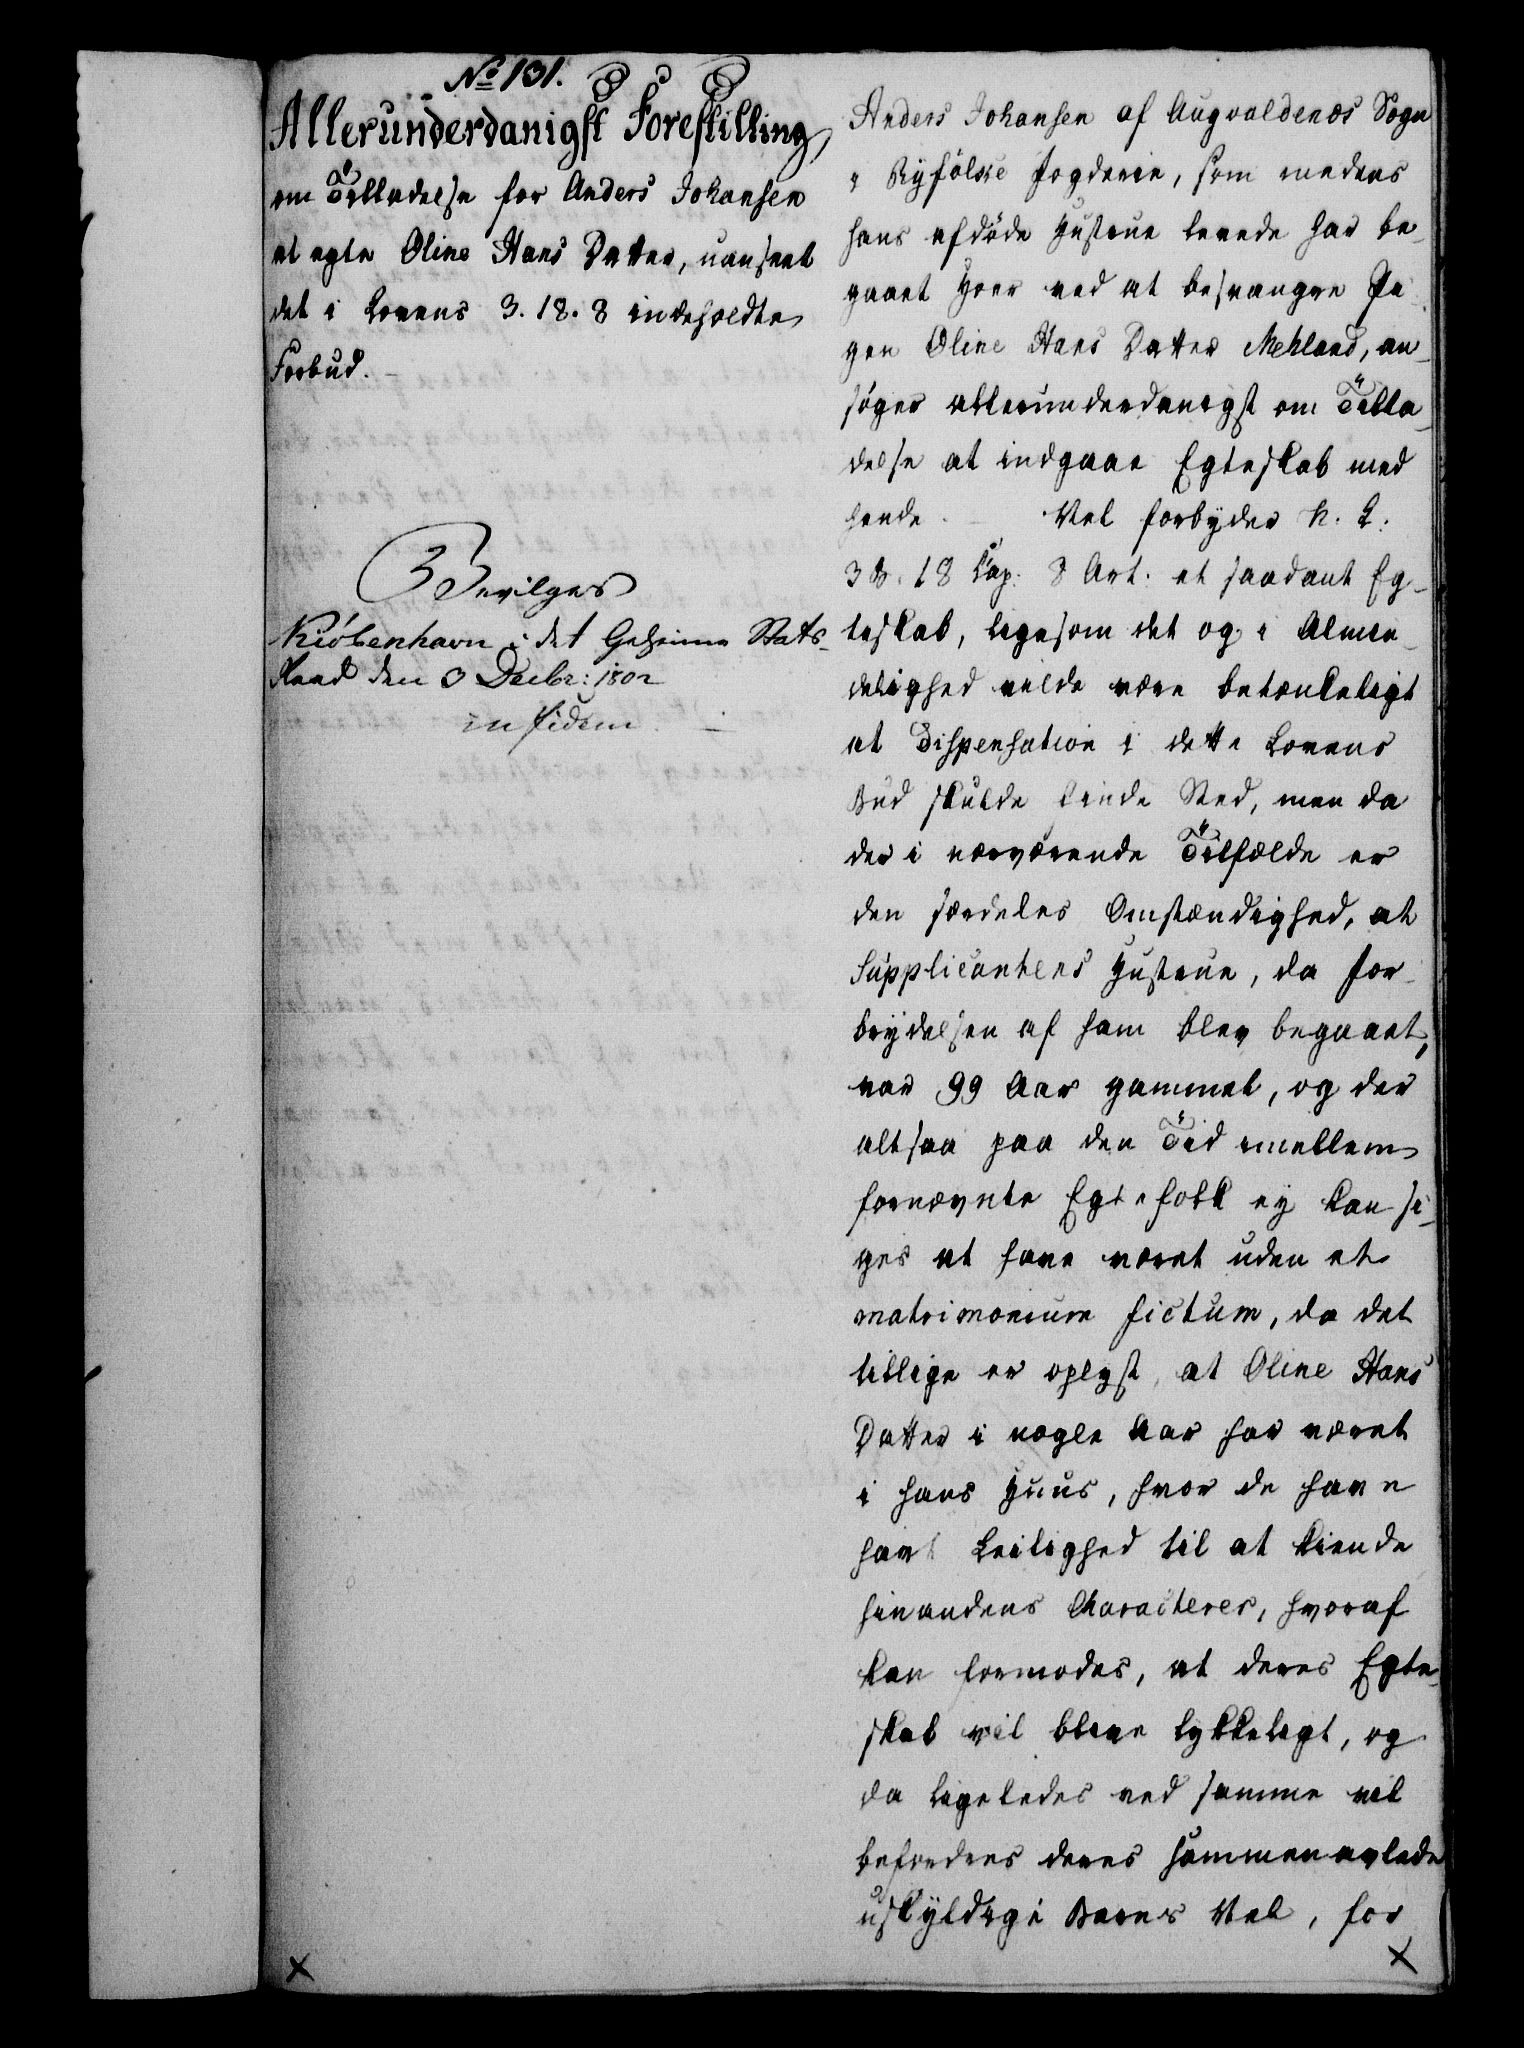 No 131.
Allerunderdanigst Forestilling
om Tilladelse for Anders Johansen
at egte Oline Hans Datter, uanseet
det i Lovens 3. 18. 8 indeholdte
Forbud. -
Bevilges
Kiöbenhavn i det Geheime Stats-
Raad den 3 Decbr: 1802
in fidem. -
Anders Johansen af Augvaldsnæs Sogn
i Ryfölke Fogderie, som medens
hans afdöde Hustrue levede har be-
gaaet Hoer ved at besvangre Pi-
gen Oline Hans Datter Mehland, an-
söger allerunderdanigst om Tilla-
delse at indgaae Egteskab med
hende. - Vel forbyder N. L.
3 B. 18 Cap. 8 Art. et saadant Eg-
teskab, ligesom det og i Almin-
delighed vilde være betænkeligt
at Dispensation i dette Lovens
Bud skulde finde Sted, men da
der i nærværende Tilfælde er
den særdeles Omstændighed, at
Supplicantens Hustrue, da For-
brydelsen af ham blev begaaet,
var 99 Aar gammel, og der
altsaa paa den Tid imellem
fornævnte Egtefolk ey kan si-
ges at have været uden et
matrimonium fictum, da det
tillige er oplyst, at Oline Hans
Datter i nogle Aar har været
i hans Huus, hvor de have
havt Leilighed til at kiende
hinandens Characterer, hvoraf
kan formodes, at deres Egte-
skab vil blive lykkeligt, og
da ligeledes ved samme vil
befordres deres sammenavlede
uskyldige Barns Vel, for